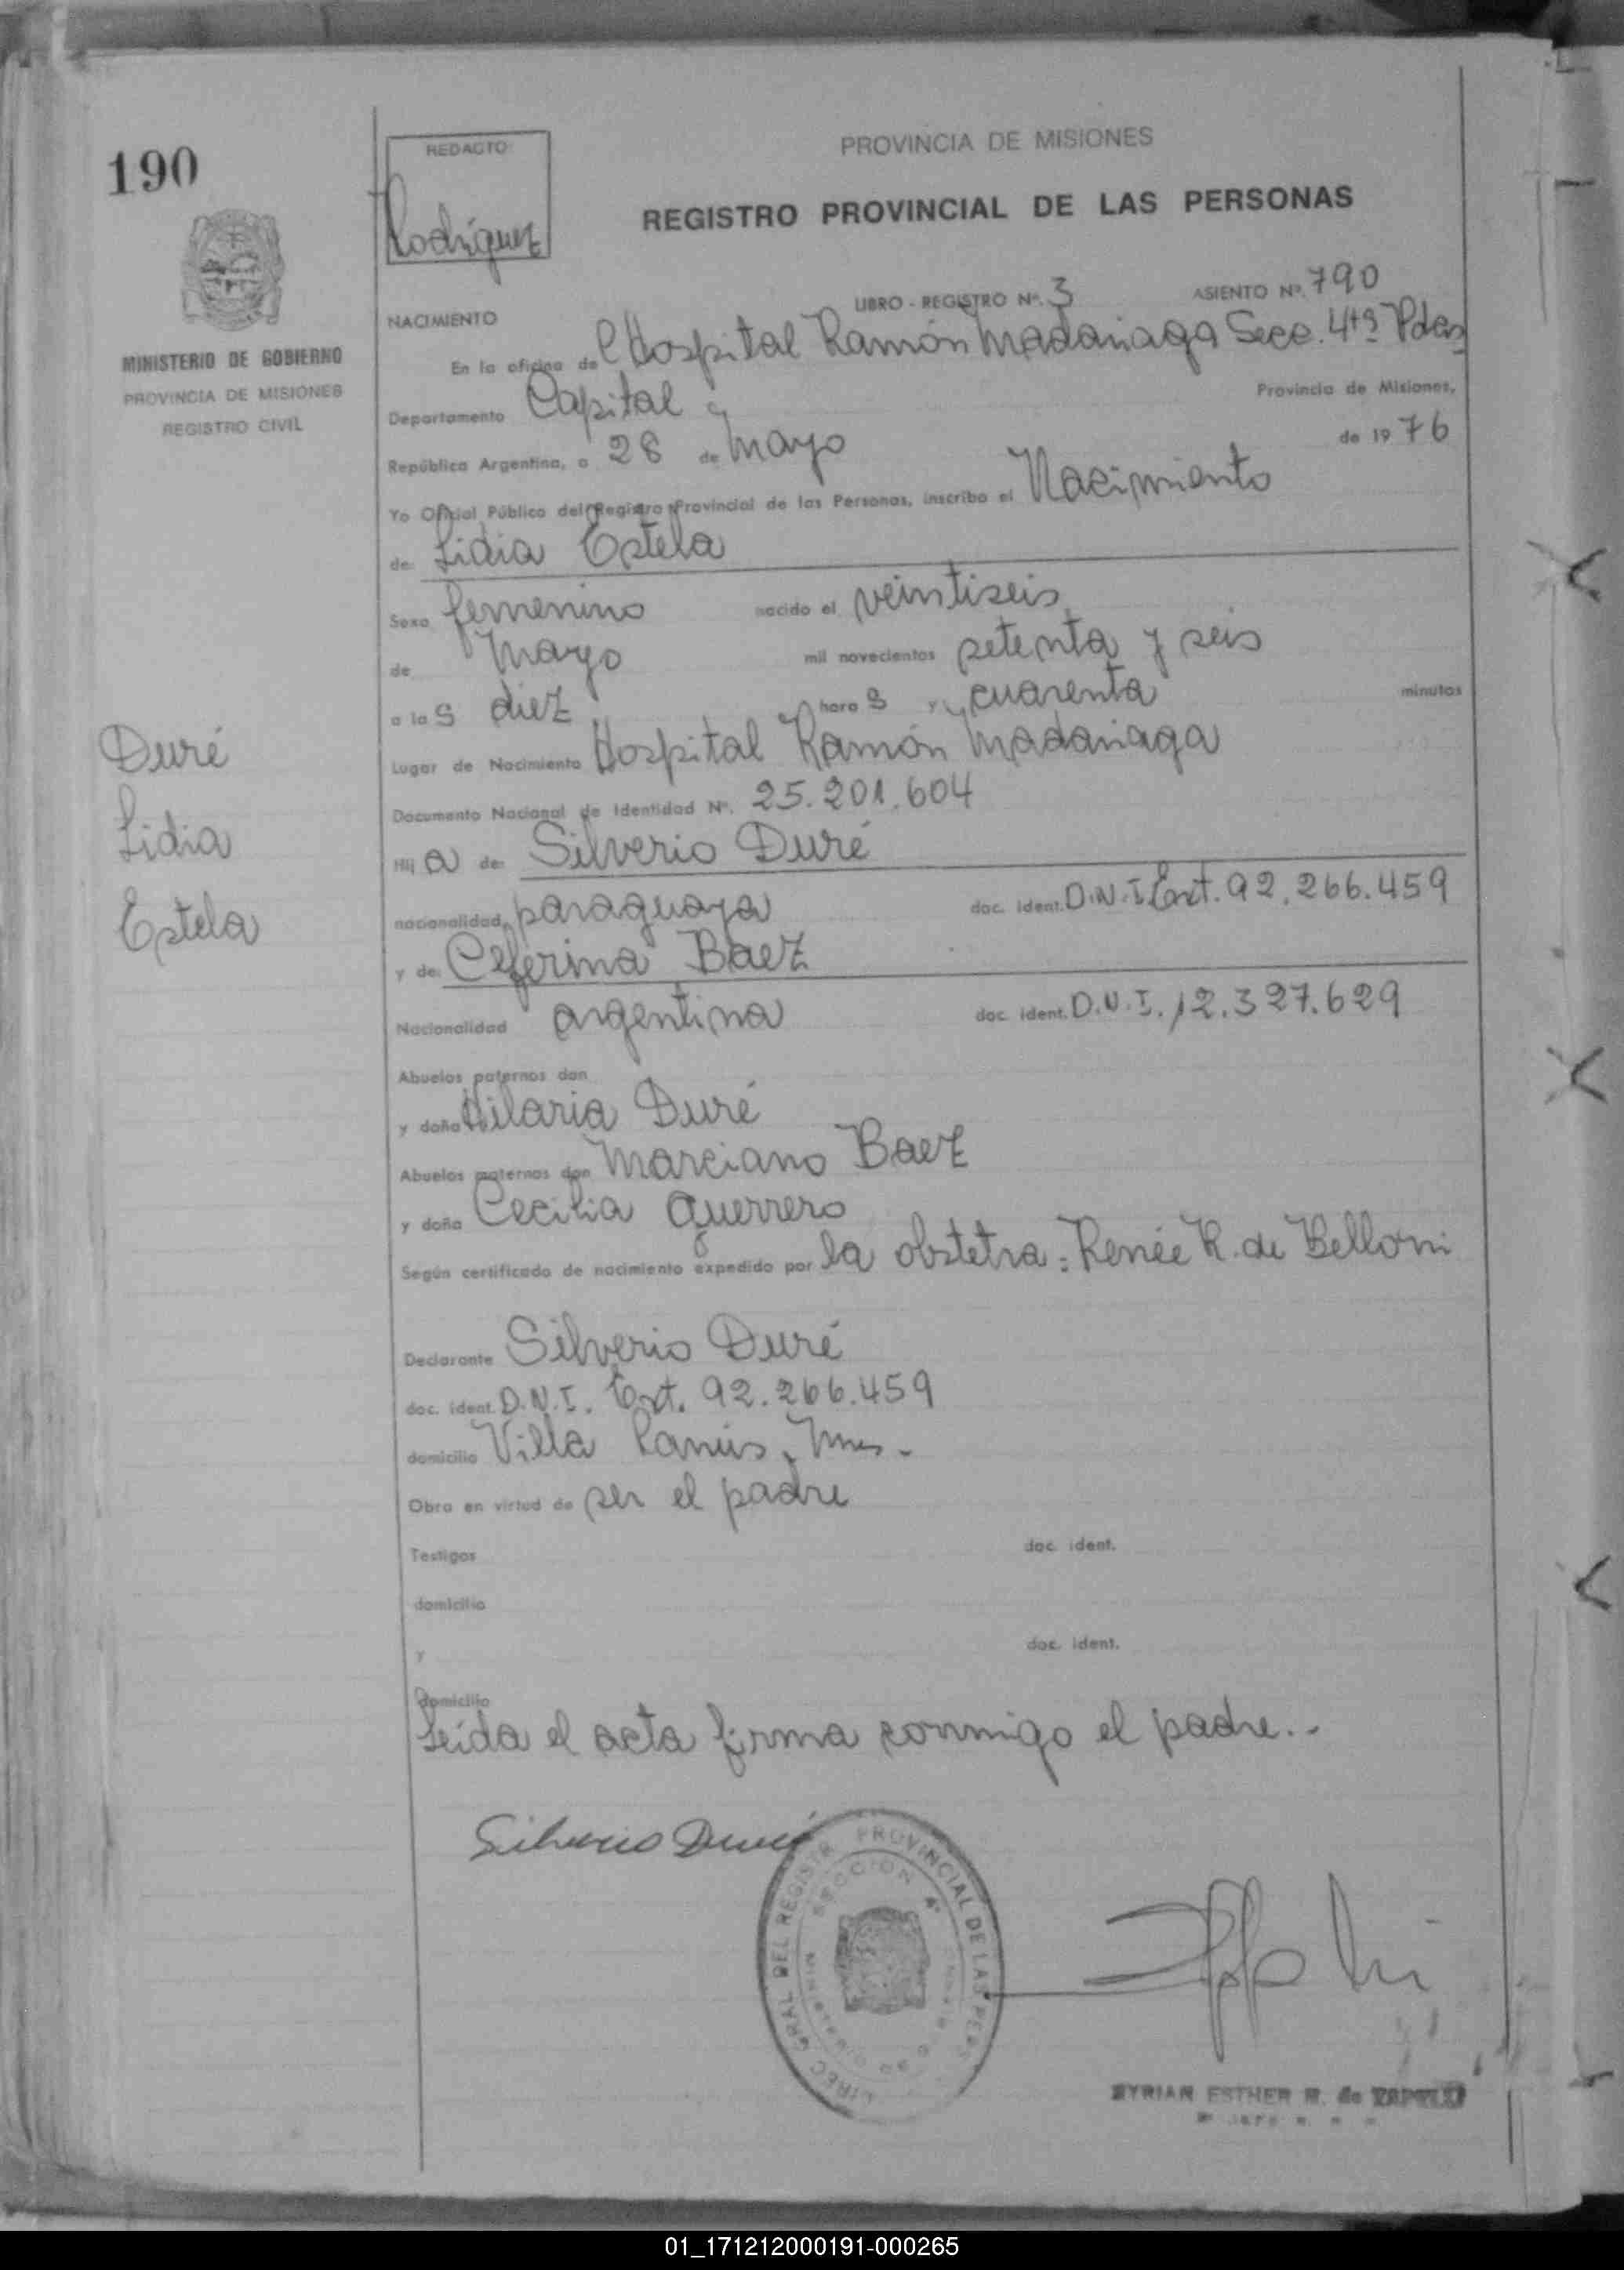 190
REDACTO
Rodríguez
PROVINCIA DE MISIONES
REGISTRO PROVINCIAL DE LAS PERSONAS
MINISTERIO DE GOBIERNO
PROVINCIA DE MISIONES
REGISTRO CIVIL
LIBRO - REGISTRO Nº. 3 ASIENTO Nº. 790
NACIMIENTO
En la oficina del Hospital Ramón Madariaga Secc. 4ta Pdas
Departamento Capital Provincia de Misiones,
República Argentina, a 28 de Mayo de 1976
Yo Oficial Público del Registro Provincial de las Personas, inscribo el Nacimiento
de: Lidia Estela
Sexo femenino nacido el veintiseis
de Mayo mil novecientos setenta y seis
a las diez horas y cuarenta minutos
Lugar de Nacimiento Hospital Ramón Madariaga
Documento Nacional de Identidad Nº. 25.201.604
Hija de: Silverio Duré
nacionalidad paraguaya doc. ident. D.N.I. Ext. 92.266.459
y de: Ceferina Baez
Nacionalidad argentina doc. ident. D.N.I. 12.327.629
Abuelos paternos don
y doña Hilaria Duré
Abuelos maternos don Marciano Baez
y doña Cecilia Guerrero
Según certificado de nacimiento expedido por la obstetra: Renée R. de Belloni
Declarante Silverio Duré
doc. ident. D.N.I. Ext. 92.266.459
domicilio Villa Lanús, Mnes.
Obra en virtud de ser el padre
Testigos doc. ident.
domicilio
y doc. ident.
domicilio
Leída el acta firma conmigo el padre..
Duré
Lidia
Estela
Silverio Duré
DIREC GRAL DEL REGISTR PROVINCIAL DE LAS PERS
SECCION 4ª
ESTHER
01_171212000191-000265